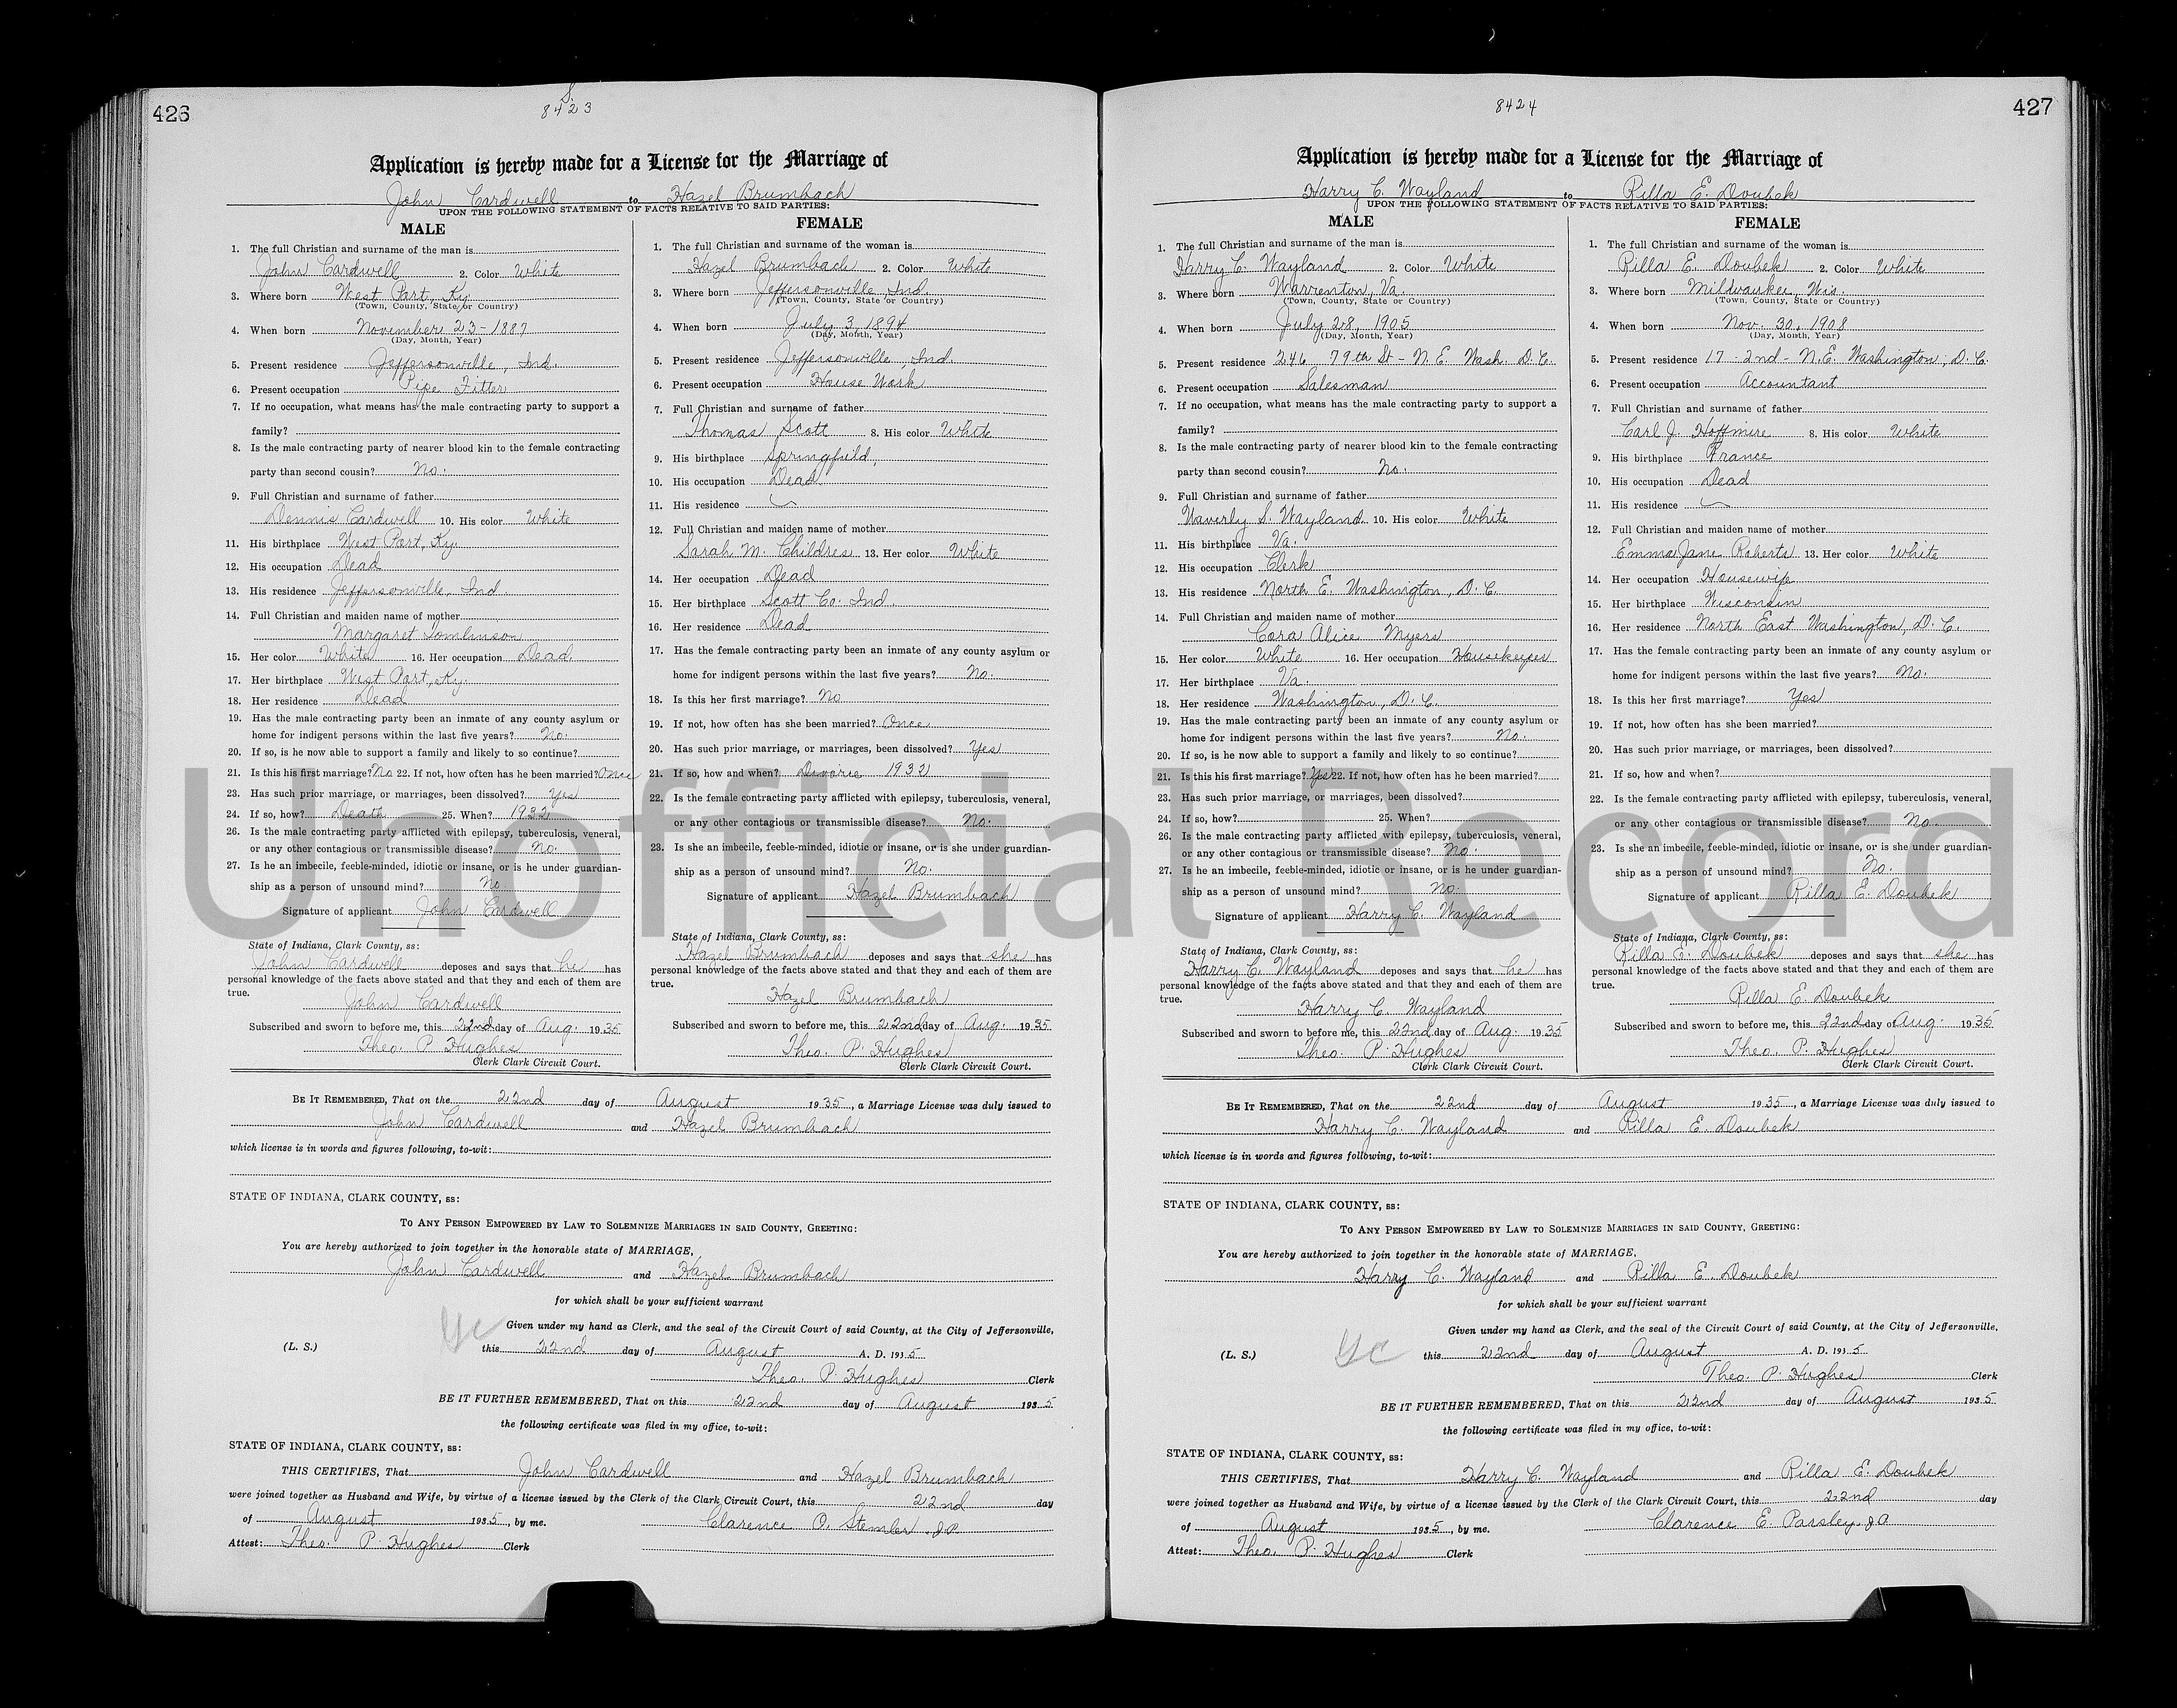 426
8423
S.
Application is hereby made for a License for the Marriage of
John Cardwell to Hazel Brumbach
UPON THE FOLLOWING STATEMENT OF FACTS RELATIVE TO SAID PARTIES:
MALE
1. The full Christian and surname of the man is
John Cardwell 2. Color White
3. Where born West Port, Ky.
(Town, County, State or Country)
4. When born November 23-1887
(Day, Month, Year)
5. Present residence Jeffersonville, Ind.
6. Present occupation Pipe Fitter
7. If no occupation, what means has the male contracting party to support a
family?
8. Is the male contracting party of nearer blood kin to the female contracting
party than second cousin? No.
9. Full Christian and surname of father
Dennis Cardwell 10. His color White
11. His birthplace West Port, Ky.
12. His occupation Dead
13. His residence Jeffersonville, Ind.
14. Full Christian and maiden name of mother
Margaret Tomlinson
15. Her color White 16. Her occupation Dead
17. Her birthplace West Port, Ky.
18. Her residence Dead
19. Has the male contracting party been an inmate of any county asylum or
home for indigent persons within the last five years? No.
20. If so, is he now able to support a family and likely to so continue?
21. Is this his first marriage? No 22. If not, how often has he been married? Once
23. Has such prior marriage, or marriages, been dissolved? Yes
24. If so, how? Death 25. When? 1932
26. Is the male contracting party afflicted with epilepsy, tuberculosis, veneral,
or any other contagious or transmissible disease? No.
27. Is he an imbecile, feeble-minded, idiotic or insane, or is he under guardian-
ship as a person of unsound mind? No
Signature of applicant John Cardwell
State of Indiana, Clark County, ss:
John Cardwell deposes and says that he has
personal knowledge of the facts above stated and that they and each of them are
true.
John Cardwell
Subscribed and sworn to before me, this 22nd day of Aug. 1935
Theo. P. Hughes
Clerk Clark Circuit Court.
FEMALE
1. The full Christian and surname of the woman is
Hazel Brumbach 2. Color White
3. Where born Jeffersonville, Ind.
(Town, County, State or Country)
4. When born July 3, 1894
(Day, Month, Year)
5. Present residence Jeffersonville, Ind.
6. Present occupation House Work
7. Full Christian and surname of father
Thomas Scott 8. His color White
9. His birthplace Springfield,
10. His occupation Dead
11. His residence
12. Full Christian and maiden name of mother
Sarah M. Childres 13. Her color White
14. Her occupation Dead
15. Her birthplace Scott Co. Ind.
16. Her residence Dead
17. Has the female contracting party been an inmate of any county asylum or
home for indigent persons within the last five years? No.
18. Is this her first marriage? No
19. If not, how often has she been married? Once
20. Has such prior marriage, or marriages, been dissolved? Yes
21. If so, how and when? Divorce 1932
22. Is the female contracting party afflicted with epilepsy, tuberculosis, veneral,
or any other contagious or transmissible disease? No.
23. Is she an imbecile, feeble-minded, idiotic or insane, or is she under guardian-
ship as a person of unsound mind? No.
Signature of applicant Hazel Brumbach
State of Indiana, Clark County, ss:
Hazel Brumbach deposes and says that she has
personal knowledge of the facts above stated and that they and each of them are
true.
Hazel Brumbach
Subscribed and sworn to before me, this 22nd day of Aug. 1935
Theo. P. Hughes
Clerk Clark Circuit Court.
BE IT REMEMBERED, That on the 22nd day of August 1935, a Marriage License was duly issued to
John Cardwell and Hazel Brumbach
which license is in words and figures following, to-wit:
STATE OF INDIANA, CLARK COUNTY, ss:
TO ANY PERSON EMPOWERED BY LAW TO SOLEMNIZE MARRIAGES IN SAID COUNTY, GREETING:
You are hereby authorized to join together in the honorable state of MARRIAGE,
John Cardwell and Hazel Brumbach
for which shall be your sufficient warrant
Given under my hand as Clerk, and the seal of the Circuit Court of said County, at the City of Jeffersonville,
(L. S.) this 22nd day of August A. D. 1935
Theo. P. Hughes Clerk
BE IT FURTHER REMEMBERED, That on this 22nd day of August 1935
the following certificate was filed in my office, to-wit:
STATE OF INDIANA, CLARK COUNTY, ss:
THIS CERTIFIES, That John Cardwell and Hazel Brumbach
were joined together as Husband and Wife, by virtue of a license issued by the Clerk of the Clark Circuit Court, this 22nd day
of August 1935, by me. Clarence O. Stemler J.P.
Attest: Theo. P. Hughes Clerk
427
8424
Application is hereby made for a License for the Marriage of
Harry C. Wayland to Rilla E. Doubek
UPON THE FOLLOWING STATEMENT OF FACTS RELATIVE TO SAID PARTIES:
MALE
1. The full Christian and surname of the man is
Harry C. Wayland 2. Color White
3. Where born Warrenton, Va.
(Town, County, State or Country)
4. When born July 28, 1905
(Day, Month, Year)
5. Present residence 246 79th St - N. E. Wash. D. C.
6. Present occupation Salesman
7. If no occupation, what means has the male contracting party to support a
family?
8. Is the male contracting party of nearer blood kin to the female contracting
party than second cousin? No.
9. Full Christian and surname of father
Waverly S. Wayland 10. His color White
11. His birthplace Va.
12. His occupation Clerk
13. His residence North E. Washington, D. C.
14. Full Christian and maiden name of mother
Cora Alice Myers
15. Her color White 16. Her occupation Housekeeper
17. Her birthplace Va.
18. Her residence Washington, D. C.
19. Has the male contracting party been an inmate of any county asylum or
home for indigent persons within the last five years? No.
20. If so, is he now able to support a family and likely to so continue?
21. Is this his first marriage? Yes 22. If not, how often has he been married?
23. Has such prior marriage, or marriages, been dissolved?
24. If so, how? 25. When?
26. Is the male contracting party afflicted with epilepsy, tuberculosis, veneral,
or any other contagious or transmissible disease? No.
27. Is he an imbecile, feeble-minded, idiotic or insane, or is he under guardian-
ship as a person of unsound mind? No.
Signature of applicant Harry C. Wayland
State of Indiana, Clark County, ss:
Harry C. Wayland deposes and says that he has
personal knowledge of the facts above stated and that they and each of them are
true.
Harry C. Wayland
Subscribed and sworn to before me, this 22nd day of Aug. 1935
Theo. P. Hughes
Clerk Clark Circuit Court.
FEMALE
1. The full Christian and surname of the woman is
Rilla E. Doubek 2. Color White
3. Where born Milwaukee, Wis.
(Town, County, State or Country)
4. When born Nov. 30, 1908
(Day, Month, Year)
5. Present residence 17 - 2nd - N.E. Washington, D. C.
6. Present occupation Accountant
7. Full Christian and surname of father
Carl J. Hoffmire 8. His color White
9. His birthplace France
10. His occupation Dead
11. His residence
12. Full Christian and maiden name of mother
Emma Jane Roberts 13. Her color White
14. Her occupation Housewife
15. Her birthplace Wisconsin
16. Her residence North East Washington, D. C.
17. Has the female contracting party been an inmate of any county asylum or
home for indigent persons within the last five years? No.
18. Is this her first marriage? Yes
19. If not, how often has she been married?
20. Has such prior marriage, or marriages, been dissolved?
21. If so, how and when?
22. Is the female contracting party afflicted with epilepsy, tuberculosis, veneral,
or any other contagious or transmissible disease? No.
23. Is she an imbecile, feeble-minded, idiotic or insane, or is she under guardian-
ship as a person of unsound mind? No.
Signature of applicant Rilla E. Doubek
State of Indiana, Clark County, ss:
Rilla E. Doubek deposes and says that she has
personal knowledge of the facts above stated and that they and each of them are
true.
Rilla E. Doubek
Subscribed and sworn to before me, this 22nd day of Aug. 1935
Theo. P. Hughes
Clerk Clark Circuit Court.
BE IT REMEMBERED, That on the 22nd day of August 1935, a Marriage License was duly issued to
Harry C. Wayland and Rilla E. Doubek
which license is in words and figures following, to-wit:
STATE OF INDIANA, CLARK COUNTY, ss:
TO ANY PERSON EMPOWERED BY LAW TO SOLEMNIZE MARRIAGES IN SAID COUNTY, GREETING:
You are hereby authorized to join together in the honorable state of MARRIAGE,
Harry C. Wayland and Rilla E. Doubek
for which shall be your sufficient warrant
Given under my hand as Clerk, and the seal of the Circuit Court of said County, at the City of Jeffersonville,
(L. S.) this 22nd day of August A. D. 1935
Theo. P. Hughes Clerk
BE IT FURTHER REMEMBERED, That on this 22nd day of August 1935
the following certificate was filed in my office, to-wit:
STATE OF INDIANA, CLARK COUNTY, ss:
THIS CERTIFIES, That Harry C. Wayland and Rilla E. Doubek
were joined together as Husband and Wife, by virtue of a license issued by the Clerk of the Clark Circuit Court, this 22nd day
of August 1935, by me. Clarence E. Parsley, J.P.
Attest: Theo. P. Hughes Clerk
Unofficial Record